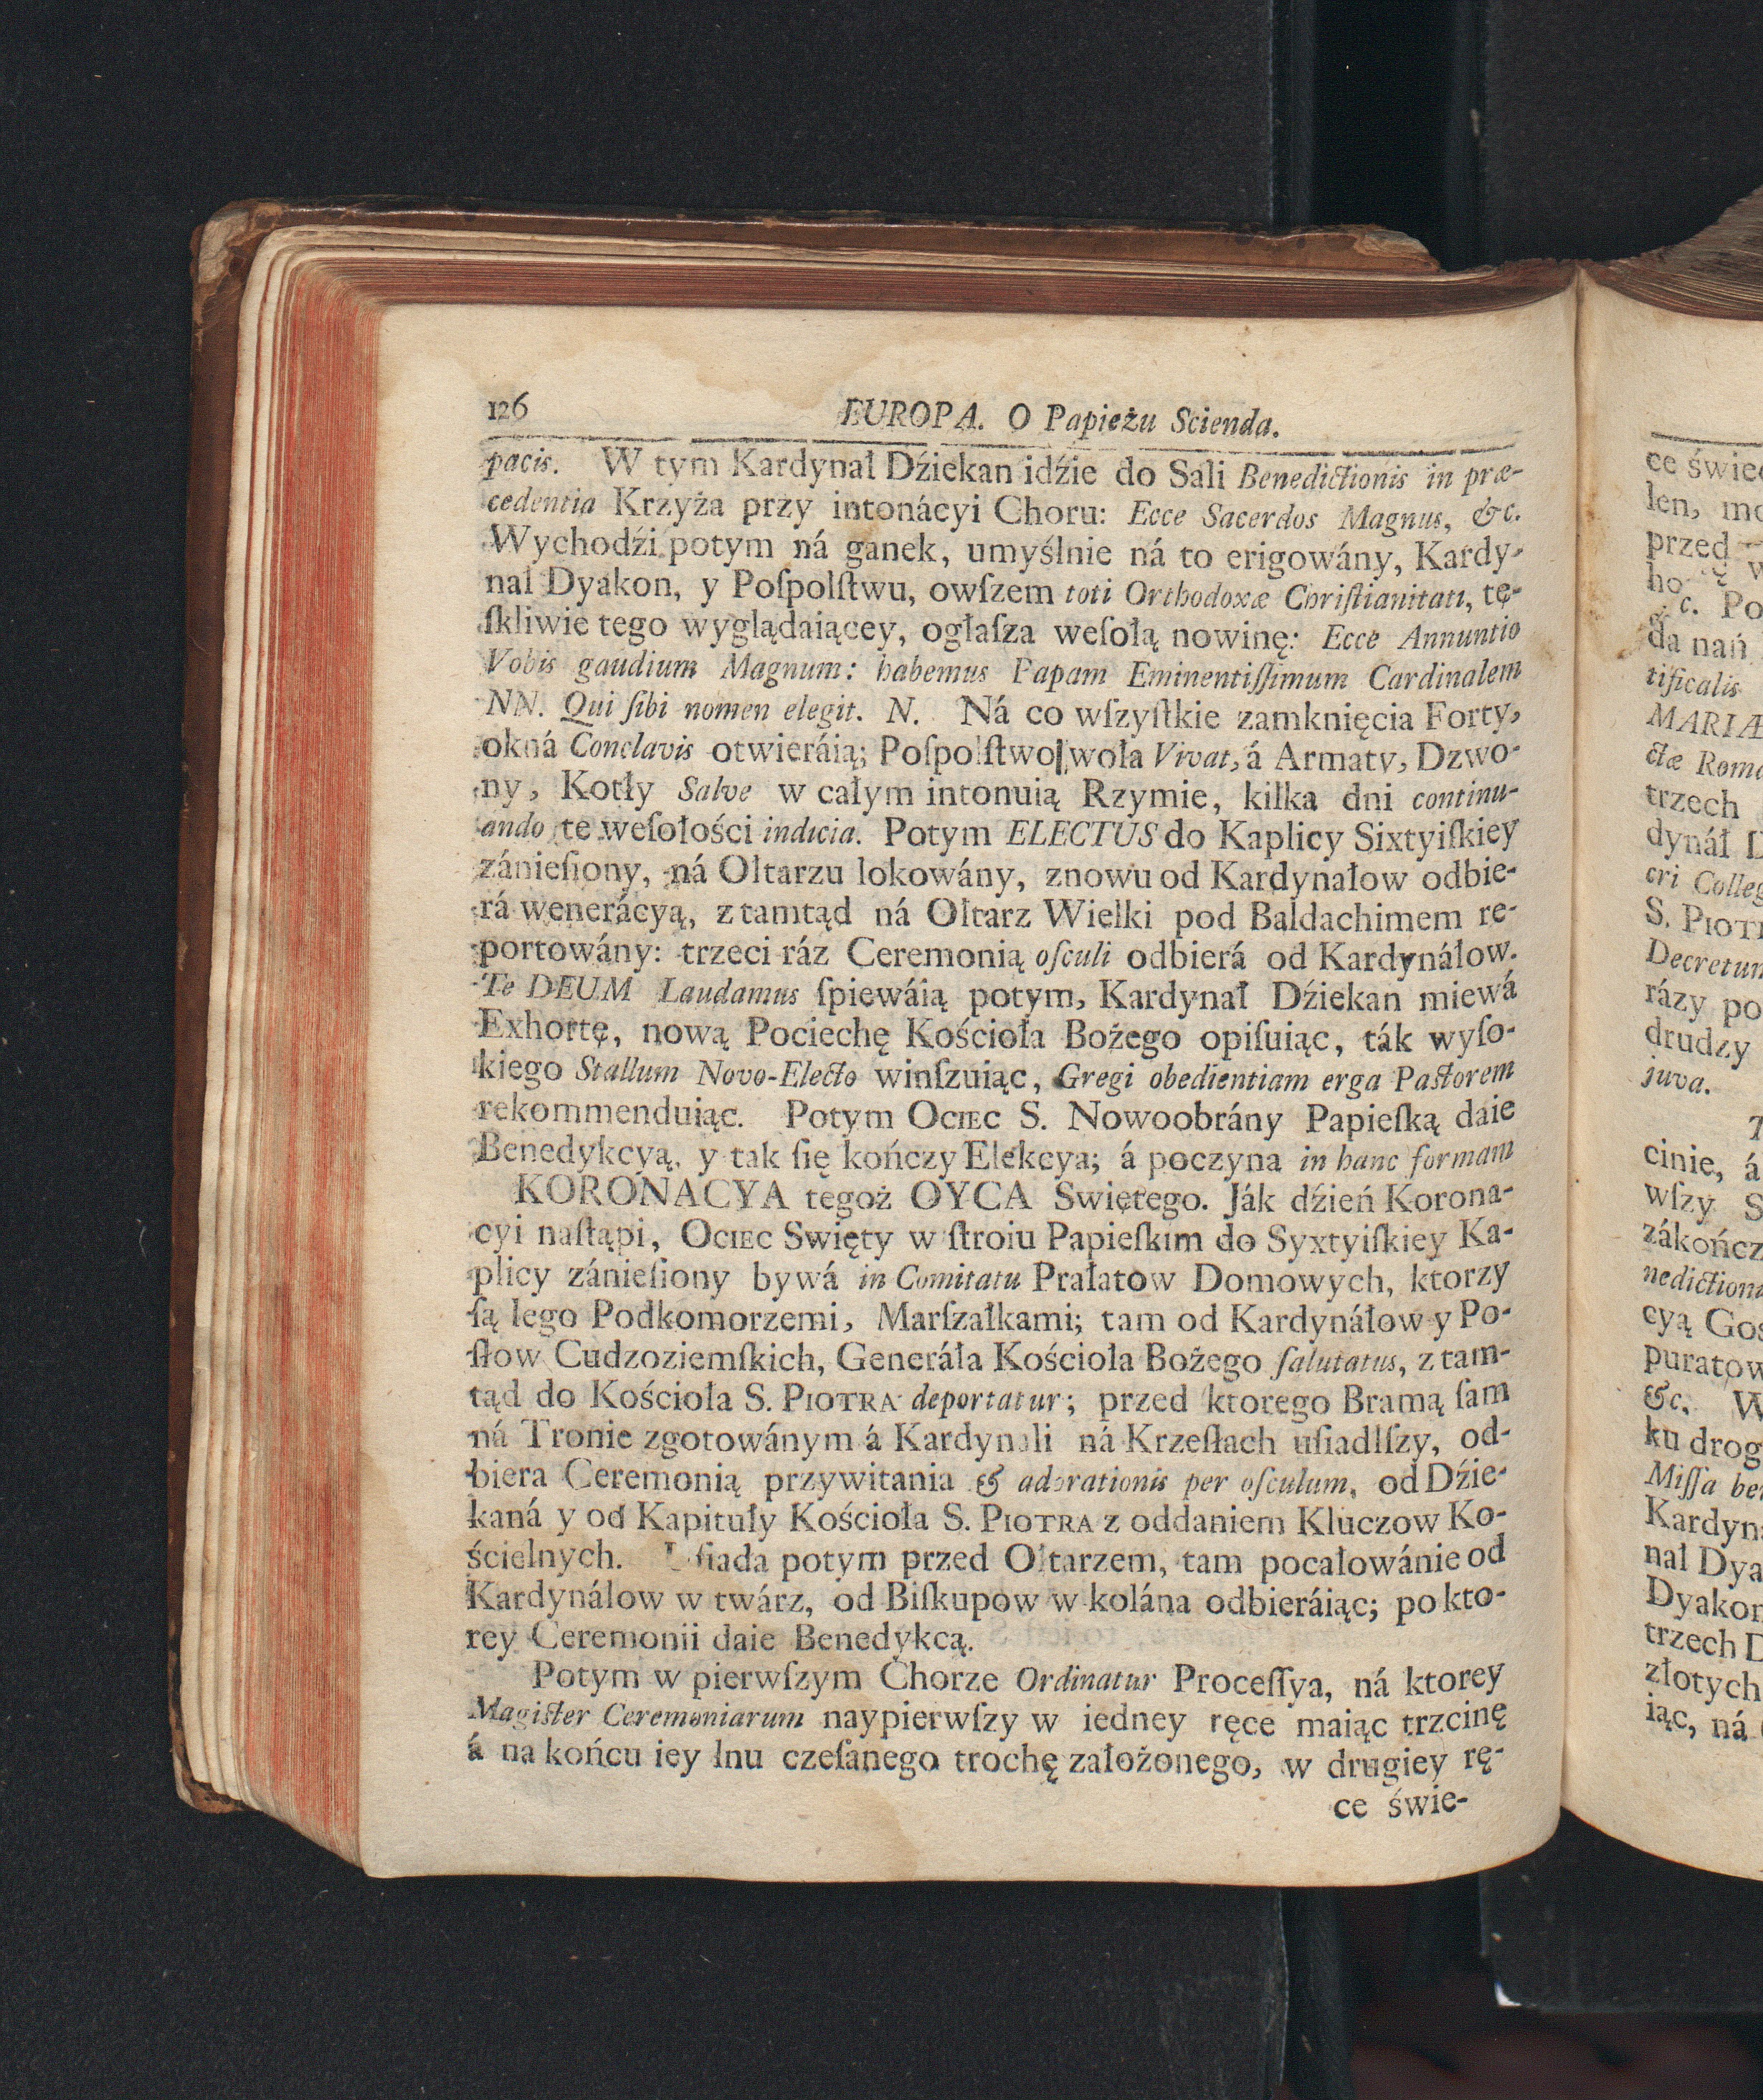 126 EUROPA. O Papieżu Scienda.
pacis. W tym Kardynał Dźiekan idźie do Sali Benedictionis in præ-
cedentia Krzyża przy intonácyi Choru: Ecce Sacerdos Magnus, &c.
Wychodźi potym ná ganek, umyślnie ná to erigowány, Kardy-
nal Dyakon, y Poſpolſtwu, owſzem toti Orthodoxæ Chriſtianitati, tę-
ſkliwie tego wyglądaiącey, ogłaſza weſołą nowinę: Ecce Annuntio
Vobis gaudium Magnum: habemus Papam Eminentiſſimum Cardinalem
NN. Qui ſibi nomen elegit. N. Ná co wſzyſtkie zamknięcia Forty,
okná Conclavis otwieráią; Poſpolſtwo woła Vivat, á Armaty, Dzwo-
ny, Kotły Salve w całym intonuią Rzymie, kilka dni continu-
ando te weſołości indicia. Potym ELECTUS do Kaplicy Sixtyiſkiey
zánieſiony, ná Ołtarzu lokowány, znowu od Kardynałow odbie-
rá wenerácyą, ztamtąd ná Ołtarz Wielki pod Baldachimem re-
portowány: trzeci ráz Ceremonią oſculi odbierá od Kardynáłow.
Te DEUM Laudamus ſpiewáią potym, Kardynał Dźiekan miewá
Exhortę, nową Pociechę Kościoła Bożego opiſuiąc, ták wyſo-
kiego Stallum Novo-Electo winſzuiąc, Gregi obedientiam erga Pastorem
rekommenduiąc. Potym Ociec S. Nowoobrány Papieſką daie
Benedykcyą, y tak ſię kończy Elekcya; á poczyna in hanc formam
KORONACYA tegoż OYCA Swiętego. Ják dźień Korona-
cyi naſtąpi, Ociec Swięty w ſtroiu Papieſkim do Syxtyiſkiey Ka-
plicy zánieſiony bywá in Comitatu Prałatow Domowych, ktorzy
ſą Iego Podkomorzemi, Marſzałkami; tam od Kardynáłow y Po-
ſłow Cudzoziemſkich, Generáła Kościoła Bożego ſalutatus, ztam-
tąd do Kościoła S. Piotra deportatur; przed ktorego Bramą ſam
ná Tronie zgotowánym á Kardynali ná Krzeſłach uſiadłſzy, od-
biera Ceremonią przywitania & adorationis per oſculum, od Dźie-
kaná y od Kapituły Kościoła S. Piotra z oddaniem Kluczow Ko-
ścielnych. Uſiada potym przed Ołtarzem, tam pocałowánie od
Kardynálow w twárz, od Biſkupow w kolána odbieráiąc; po kto-
rey Ceremonii daie Benedykcą.
Potym w pierwſzym Chorze Ordinatur Proceſſya, ná ktorey
Magister Ceremoniarum naypierwſzy w iedney ręce maiąc trzcinę
á na końcu iey lnu czeſanego trochę założonego, w drugiey rę-
ce świe-
len, mo
przed
Po
da nań
tificalis
MARIÆ
ctæ Roma
trzech
dynáł D
cri Colleg
S. Piot
Decretum
rázy po
drudzy
juva.
cinie, á
wſzy S
zákończ
nediction
cyą Goś
puratow
&c. W
ku drog
Miſſa be
Kardyn
nal Dya
Dyakon
trzech D
złotych
iąc, ná